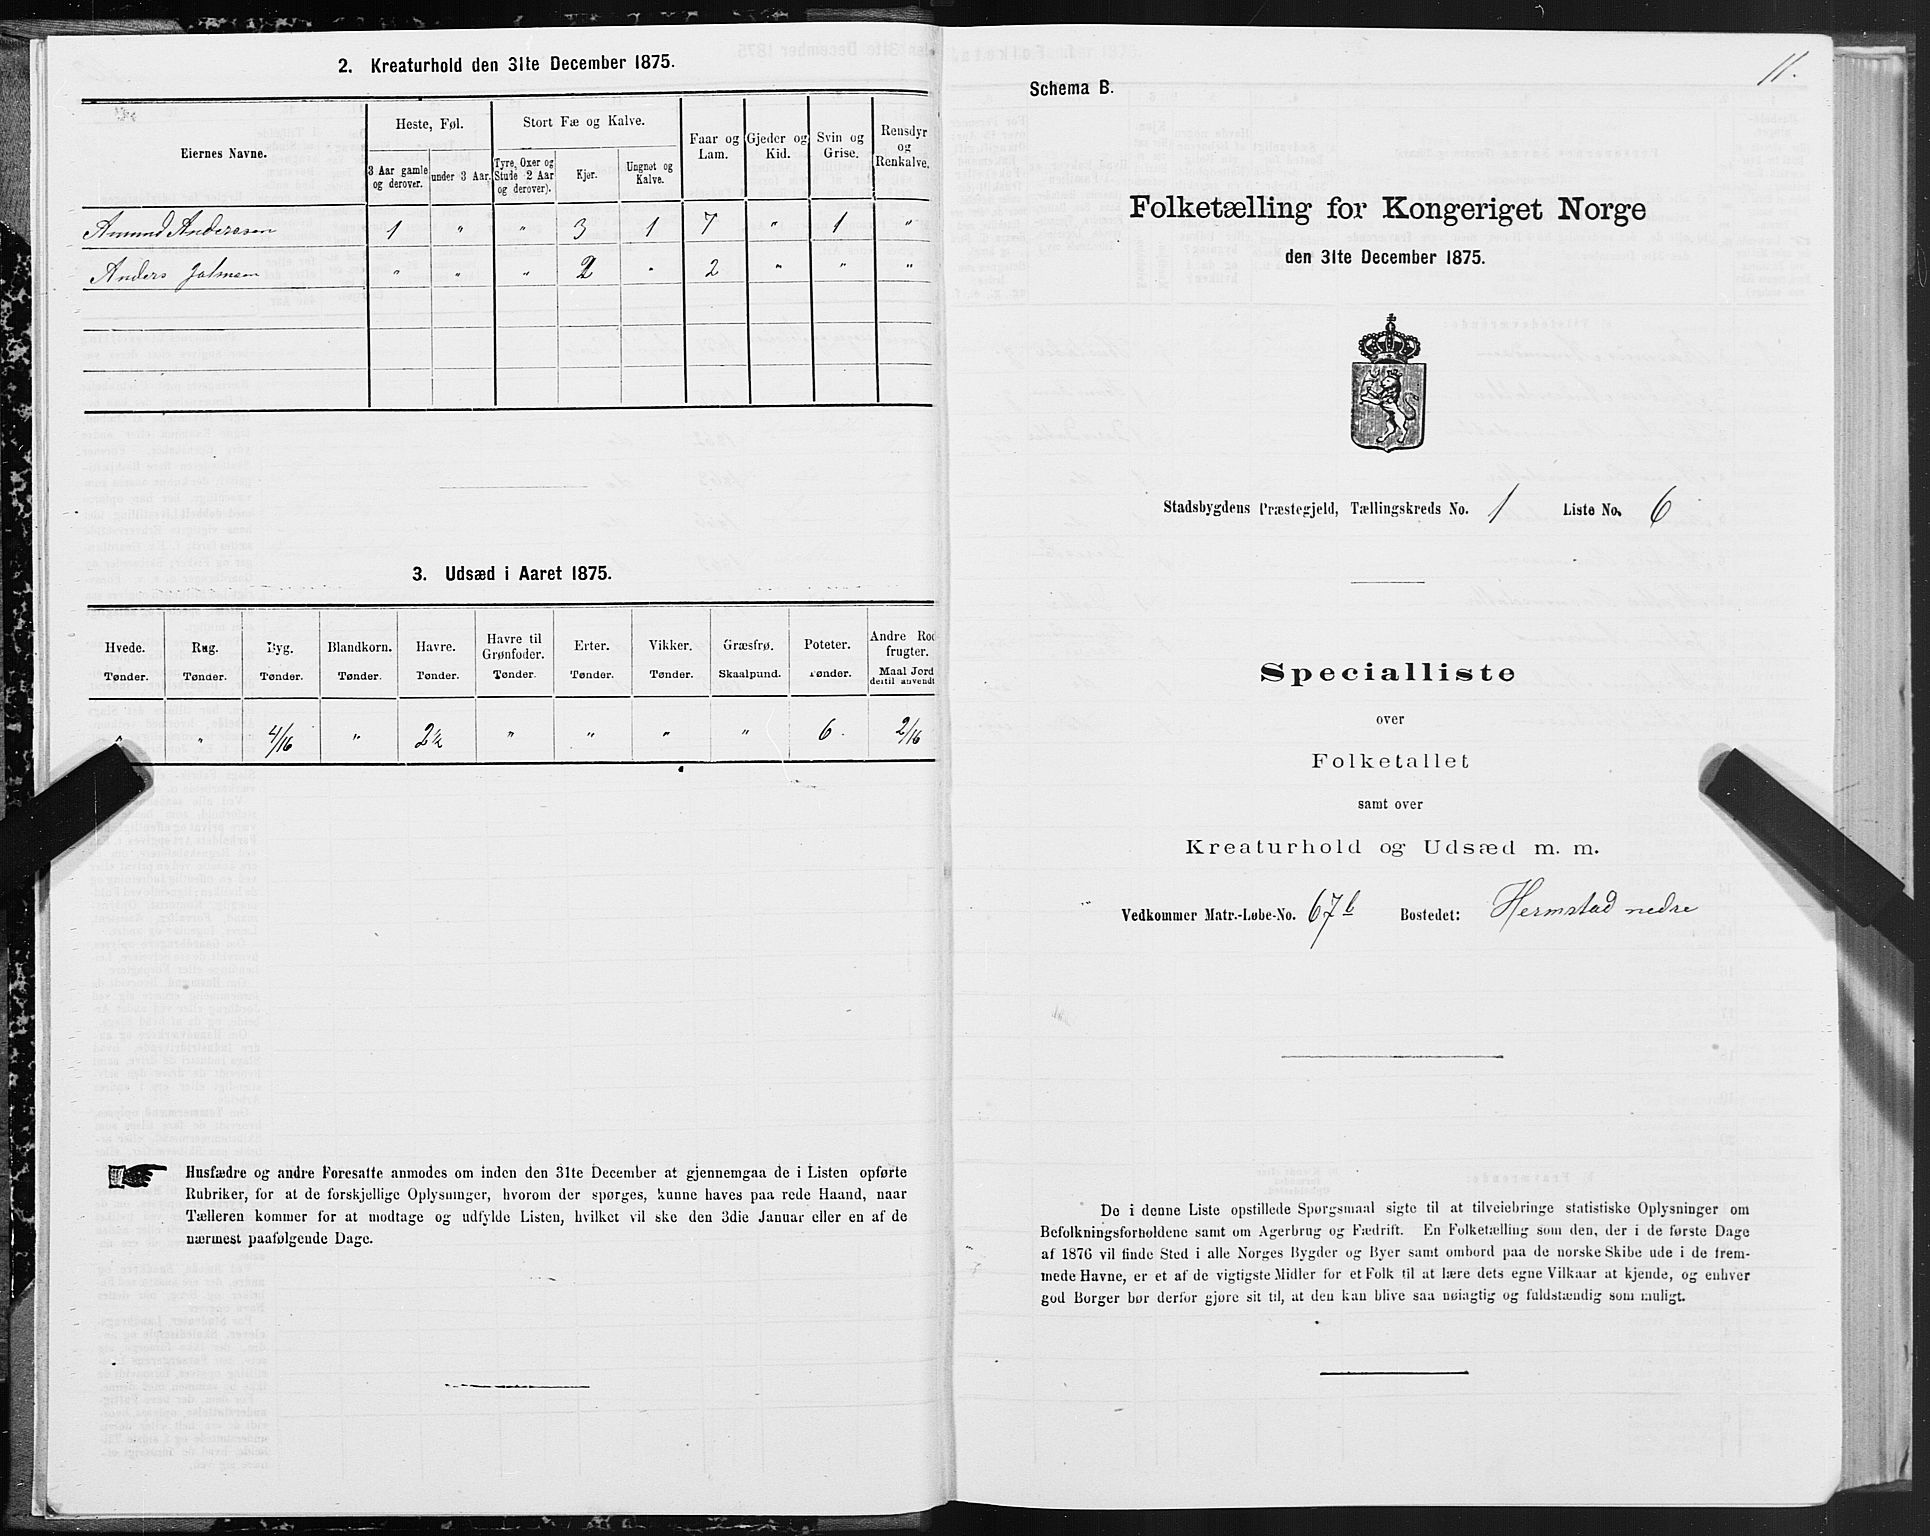 2. Kreaturhold den 31te December 1875.
Eiernes Navne.
Heste, Føl.
Stort Fæ og Kalve.
Faar og Lam.
Gjeder og Kid.
Svin og Grise.
Rensdyr og Renkalve.
3 Aar gamle og derover.
under 3 Aar.
Tyre, Oxer og Stude 2 Aar og derover).
Kjør.
Ungnøt og Kalve.
Amund Anderssen 1 " " 3 1 7 " 1 "
Anders " " " 2 " 2 " " "
3. Udsæd i Aaret 1875.
Hvede. Rug. Byg. Blandkorn. Havre. Havre til Grønfoder. Erter. Vikker. Græsfrø. Poteter. Andre Rodfrugter.
Tønder. Tønder. Tønder. Tønder. Tønder. Tønder. Tønder. Tønder. Skaalpund. Tønder. Maal Jord dertil anvendt
" " 4/16 " 2½ " " " " 6. 2/16
Husfædre og andre Foresatte anmodes om inden den 31te December at gjennemgaa de i Listen opførte
Rubriker, for at de forskjellige Oplysninger, hvorom der spørges, kunne haves paa rede Haand, naar
Tælleren kommer for at modtage og udfylde Listen, hvilket vil ske den 3die Januar eller en af de
nærmest paafølgende Dage.
11.
Schema B.
Folketælling for Kongeriget Norge
den 31te December 1875.
Stadsbygdens Præstegjeld, Tællingskreds No. 1 Liste No. 6
Specialliste
over
Folketallet
samt over
Kreaturhold og Udsæd m. m.
Vedkommer Matr.-Løbe-No. 67b Bostedet: Hermstad nedre
De i denne Liste opstillede Spørgsmaal sigte til at tilveiebringe statistiske Oplysninger om
Befolkningsforholdene samt om Agerbrug og Fædrift. En Folketælling som den, der i de første Dage
af 1876 vil finde Sted i alle Norges Bygder og Byer samt ombord paa de norske Skibe ude i de frem-
mede Havne, er et af de vigtigste Midler for et Folk til at lære dets egne Vilkaar at kjende, og enhver
god Borger bør derfor gjøre sit til, at den kan blive saa nøiagtig og fuldstændig som muligt.